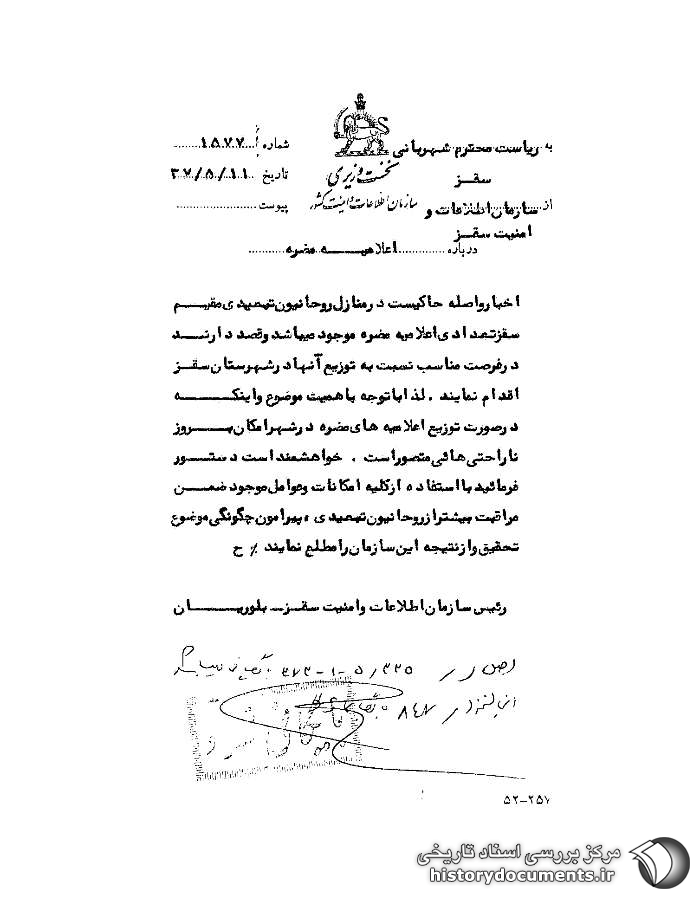 به ریاست محترم شهربانی
سقز
از سازمان اطلاعات و
امنیت سقز
درباره اعلامیه مضره
نخست وزیری
سازمان اطلاعات و امنیت کشور
شماره ۱۵۷۷
تاریخ ۳۷/۵/۱۱
پیوست
اخبار واصله حاکیست در منازل روحانیون تبعیدی مقیم
سقز تعدادی اعلامیه مضره موجود میباشد و قصد دارند
در فرصت مناسب نسبت به توزیع آنها در شهرستان سقز
اقدام نمایند . لذا با توجه باهمیت موضوع و اینکه
در صورت توزیع اعلامیه های مضره در شهر امکان بروز
ناراحتی هائی متصور است . خواهشمند است دستور
فرمائید با استفاده از کلیه امکانات و عوامل موجود ضمن
مراقبت بیشتر از روحانیون تبعیدی ، پیرامون چگونگی موضوع
تحقیق و از نتیجه این سازمان را مطلع نمایند ٪ ح
رئیس سازمان اطلاعات و امنیت سقز - بلوریان
اصل در
۸۴۷
۵۲-۲۵۷
مرکز بررسی اسناد تاریخی
historydocuments.ir